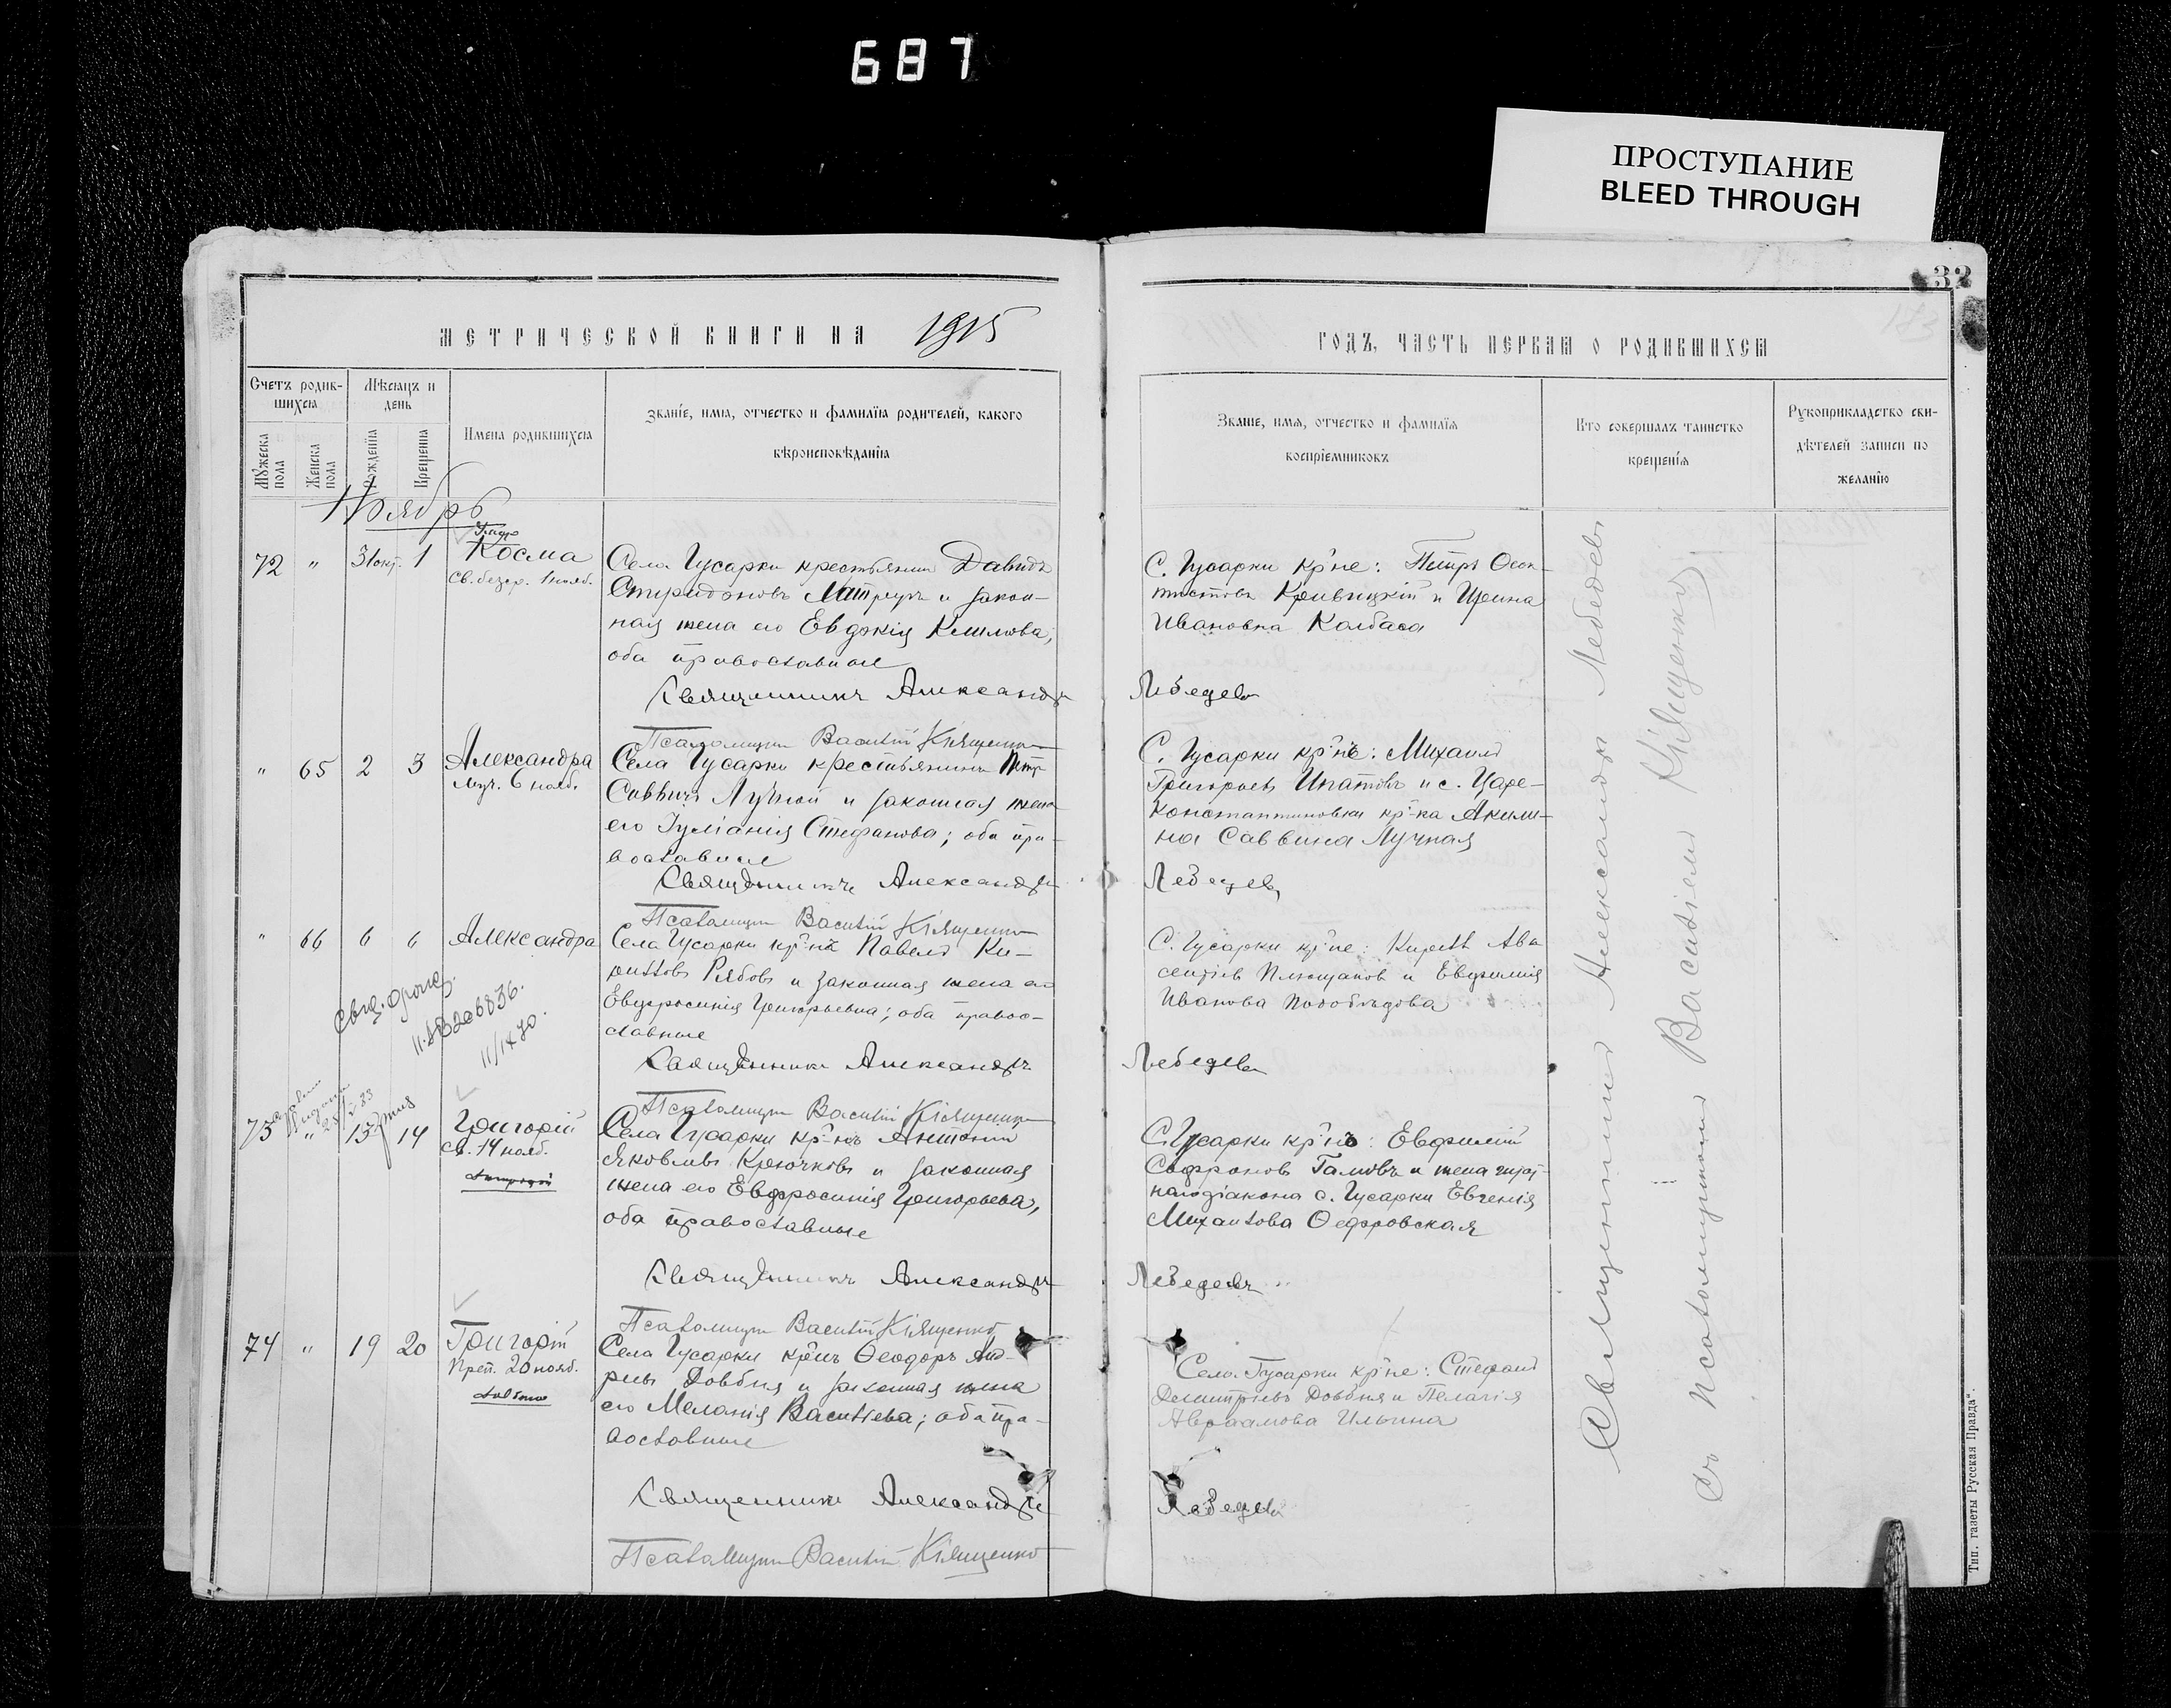 687
ПРОСТУПАНИЕ
BLEED THROUGH
33
МЕТРИЧЕСКОЙ КНИГИ НА 1915
ГОДЪ, ЧАСТЬ ПЕРВАЯ О РОДИВШИХСЯ
Счетъ родив-
шихся
Мѣсяцъ и
день
Мужеска
пола
Женска
пола
Рожденія
Крещенія
Имена родившихся
Званіе, имя, отчество и фамилія родителей, какого
вѣроисповѣданія
Званіе, имя, отчество и фамилія
воспріемниковъ
Кто совершалъ таинство
крещенія
Рукоприкладство сви-
дѣтелей записи по
желанію
Ноябрь
72 " 31 окт. 1
Косма
Св. безср. 1 нояб.
Села Гусарки крестьянинъ Давидъ
Спиридоновъ и закон-
ная жена его Евдокія
оба православные
Священникъ Александръ
С. Гусарки кр-не: Петръ Ѳеок-
тистовъ Кривицкій и Ирина
Ивановна Колбаса
Лебедевъ
Псаломщикъ Василій Кіященко
" 65 2 3
Александра
муч. 6 нояб.
Села Гусарки крестьянинъ Петръ
Саввичъ Лучной и законная жена
его Іуліанія Стефанова; оба пра-
вославные
Священникъ Александръ
С. Гусарки кр-не: Михаилъ
Григорьевъ Ипатовъ и с. Царе-
константиновки кр-ка Акили-
на Саввина Лучная
Лебедевъ
Псаломщикъ Василій Кіященко
" 66 6 6
Александра
Села Гусарки кр-нъ Павелъ Ки-
рилловъ Рябовъ и законная жена его
Евфросинія Григорьевна; оба право-
славные
Священникъ Александръ
С. Гусарки кр-не: Кириллъ Авк
сентіевъ Плющаковъ и Евфимія
Иванова
Лебедевъ
11/IX 70.
Псаломщикъ Василій Кіященко
73 " 13 14
Григорій
Св. 14 нояб.
Села Гусарки кр-нъ Антоній
Яковлевъ Крючковъ и законная
жена его Евфросинія Григорьева,
оба православные
Священникъ Александръ
С. Гусарки кр-нъ: Евфимій
Софроновъ Галовъ и жена
діакона с. Гусарки Евгенія
Михаилова Ѳедоровская
Лебедевъ
Псаломщикъ Василій Кіященко
74 " 19 20
Григорій
Преп. 20 нояб.
Довбня
Села Гусарки кр-нъ Ѳеодоръ Анд-
реевъ Довбня и законная жена
его Меланія Васильева; оба пра-
вославные
Священникъ Александръ
Села Гусарки кр-не: Стефанъ
Димитріевъ Довбня и Пелагія
Авраамова Ильина
Лебедевъ
Псаломщикъ Василій Кіященко
Священникъ Александръ Лебедевъ
Съ псаломщикомъ Василіемъ Кіященко
Тип. газеты „Русская Правда".